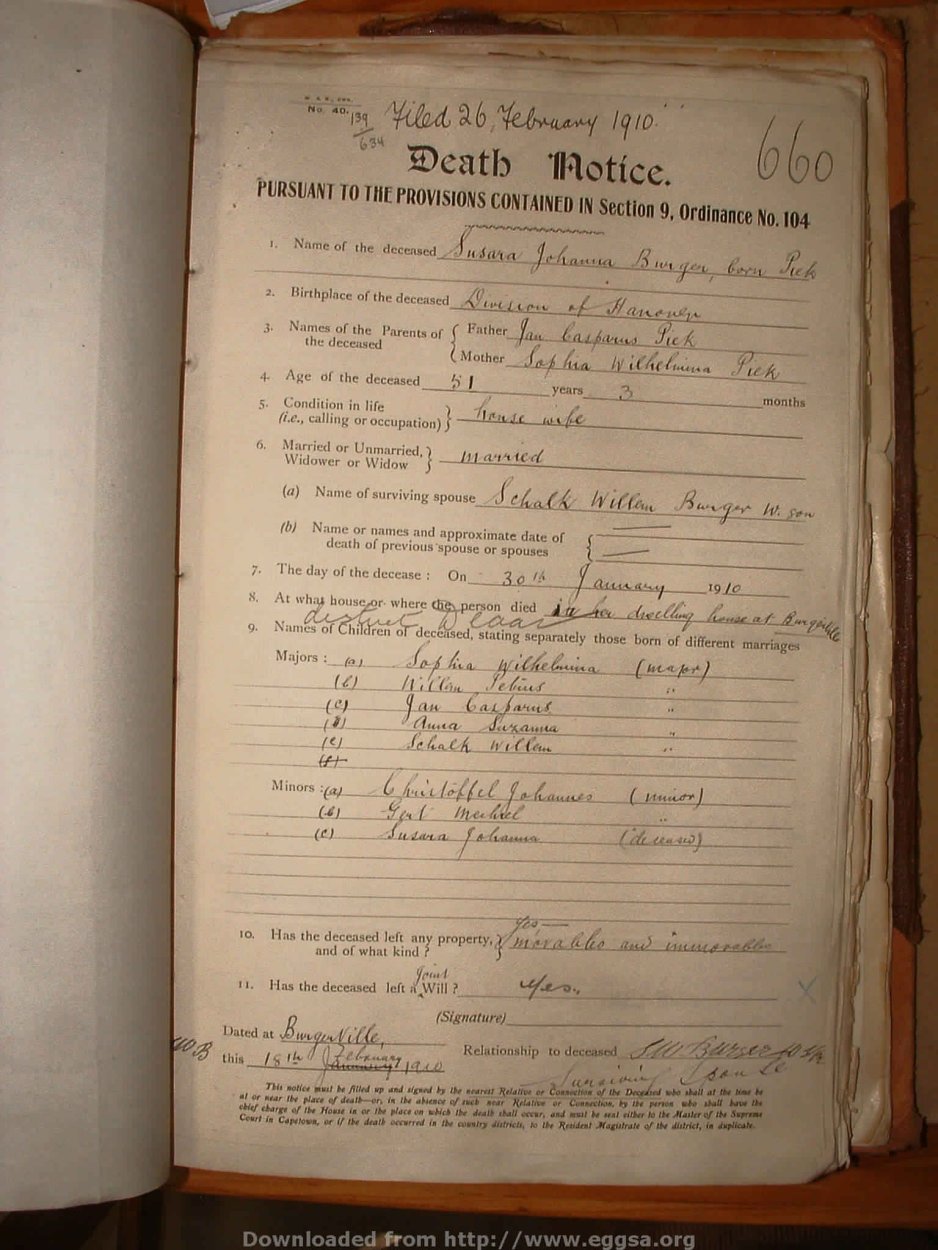 No. 40.
139
634
Filed 26, February 1910.
660
Death Notice.
PURSUANT TO THE PROVISIONS CONTAINED IN Section 9, Ordinance No. 104
1. Name of the deceased Susara Johanna Burger, born Piek
2. Birthplace of the deceased Division of Hanover
3. Names of the Parents of the deceased { Father Jan Casparus Piek
Mother Sophia Wilhelmina Piek
4. Age of the deceased 51 years 3 months
5. Condition in life (i.e., calling or occupation) } house wife
6. Married or Unmarried, Widower or Widow } married
(a) Name of surviving spouse Schalk Willem Burger W. son
(b) Name or names and approximate date of death of previous spouse or spouses { —
7. The day of the decease : On 30th January 1910
8. At what house or where the person died in her dwelling house at Burgerville
district De aar
9. Names of Children of deceased, stating separately those born of different marriages
Majors : (a) Sophia Wilhelmina (major)
(b) Willem Petrus "
(c) Jan Casparus "
(d) Anna Suzanna "
(e) Schalk Willem "
(f)
Minors : (a) Christoffel Johannes (minor)
(b) Gert "
(c) Susara Johanna (deceased)
10. Has the deceased left any property, and of what kind ? } yes — movables and immovables
11. Has the deceased left a joint Will ? yes.
(Signature)
Dated at Burgerville,
this 18th January February 1910
Relationship to deceased S W Burger
Surviving Spouse
This notice must be filled up and signed by the nearest Relative or Connection of the Deceased who shall at the time be
at or near the place of death—or, in the absence of such near Relative or Connection, by the person who shall have the
chief charge of the House in or the place on which the death shall occur, and must be sent either to the Master of the Supreme
Court in Capetown, or if the death occurred in the country districts, to the Resident Magistrate of the district, in duplicate.
Downloaded from http://www.eggsa.org